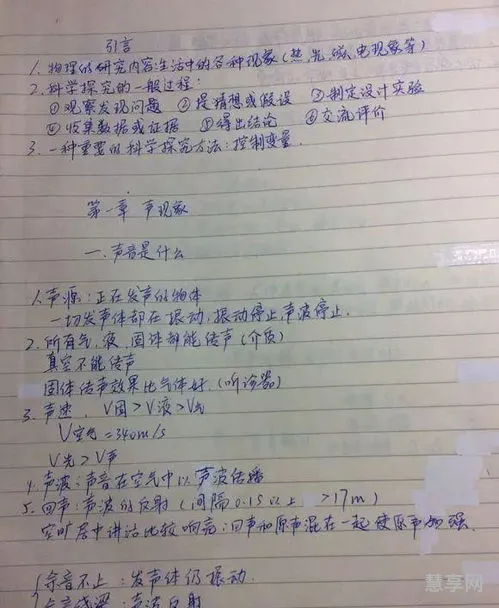 引言
1. 物理的研究内容:生活中的各种现象(热,光,磁,电现象等)
2. 科学探究的一般过程:
①观察发现问题 ②提猜想或假设 ③制定设计实验
④收集数据或证据 ⑤得出结论 ⑥交流评价
3. 一种重要的科学探究方法:控制变量.
第一章 声现象
一.声音是什么
1.声源:正在发声的物体
一切发声体都在振动,振动停止,声波停止.
2. 所有气,液,固体都能传声(介质)
真空不能传声
固体传声效果比气体好.(听诊器)
3. 声速. V固>V液>V气
V空气=340m/s
V光>V声
4. 声波:声音在空气中以声波传播
5. 回声:声波的反射(间隔0.1S以上 >17m)
空旷屋中讲话比较响亮:回声和原声混在一起使原声加强.
余音不止:发声体仍振动.
余音绕梁:声波反射
慧享网